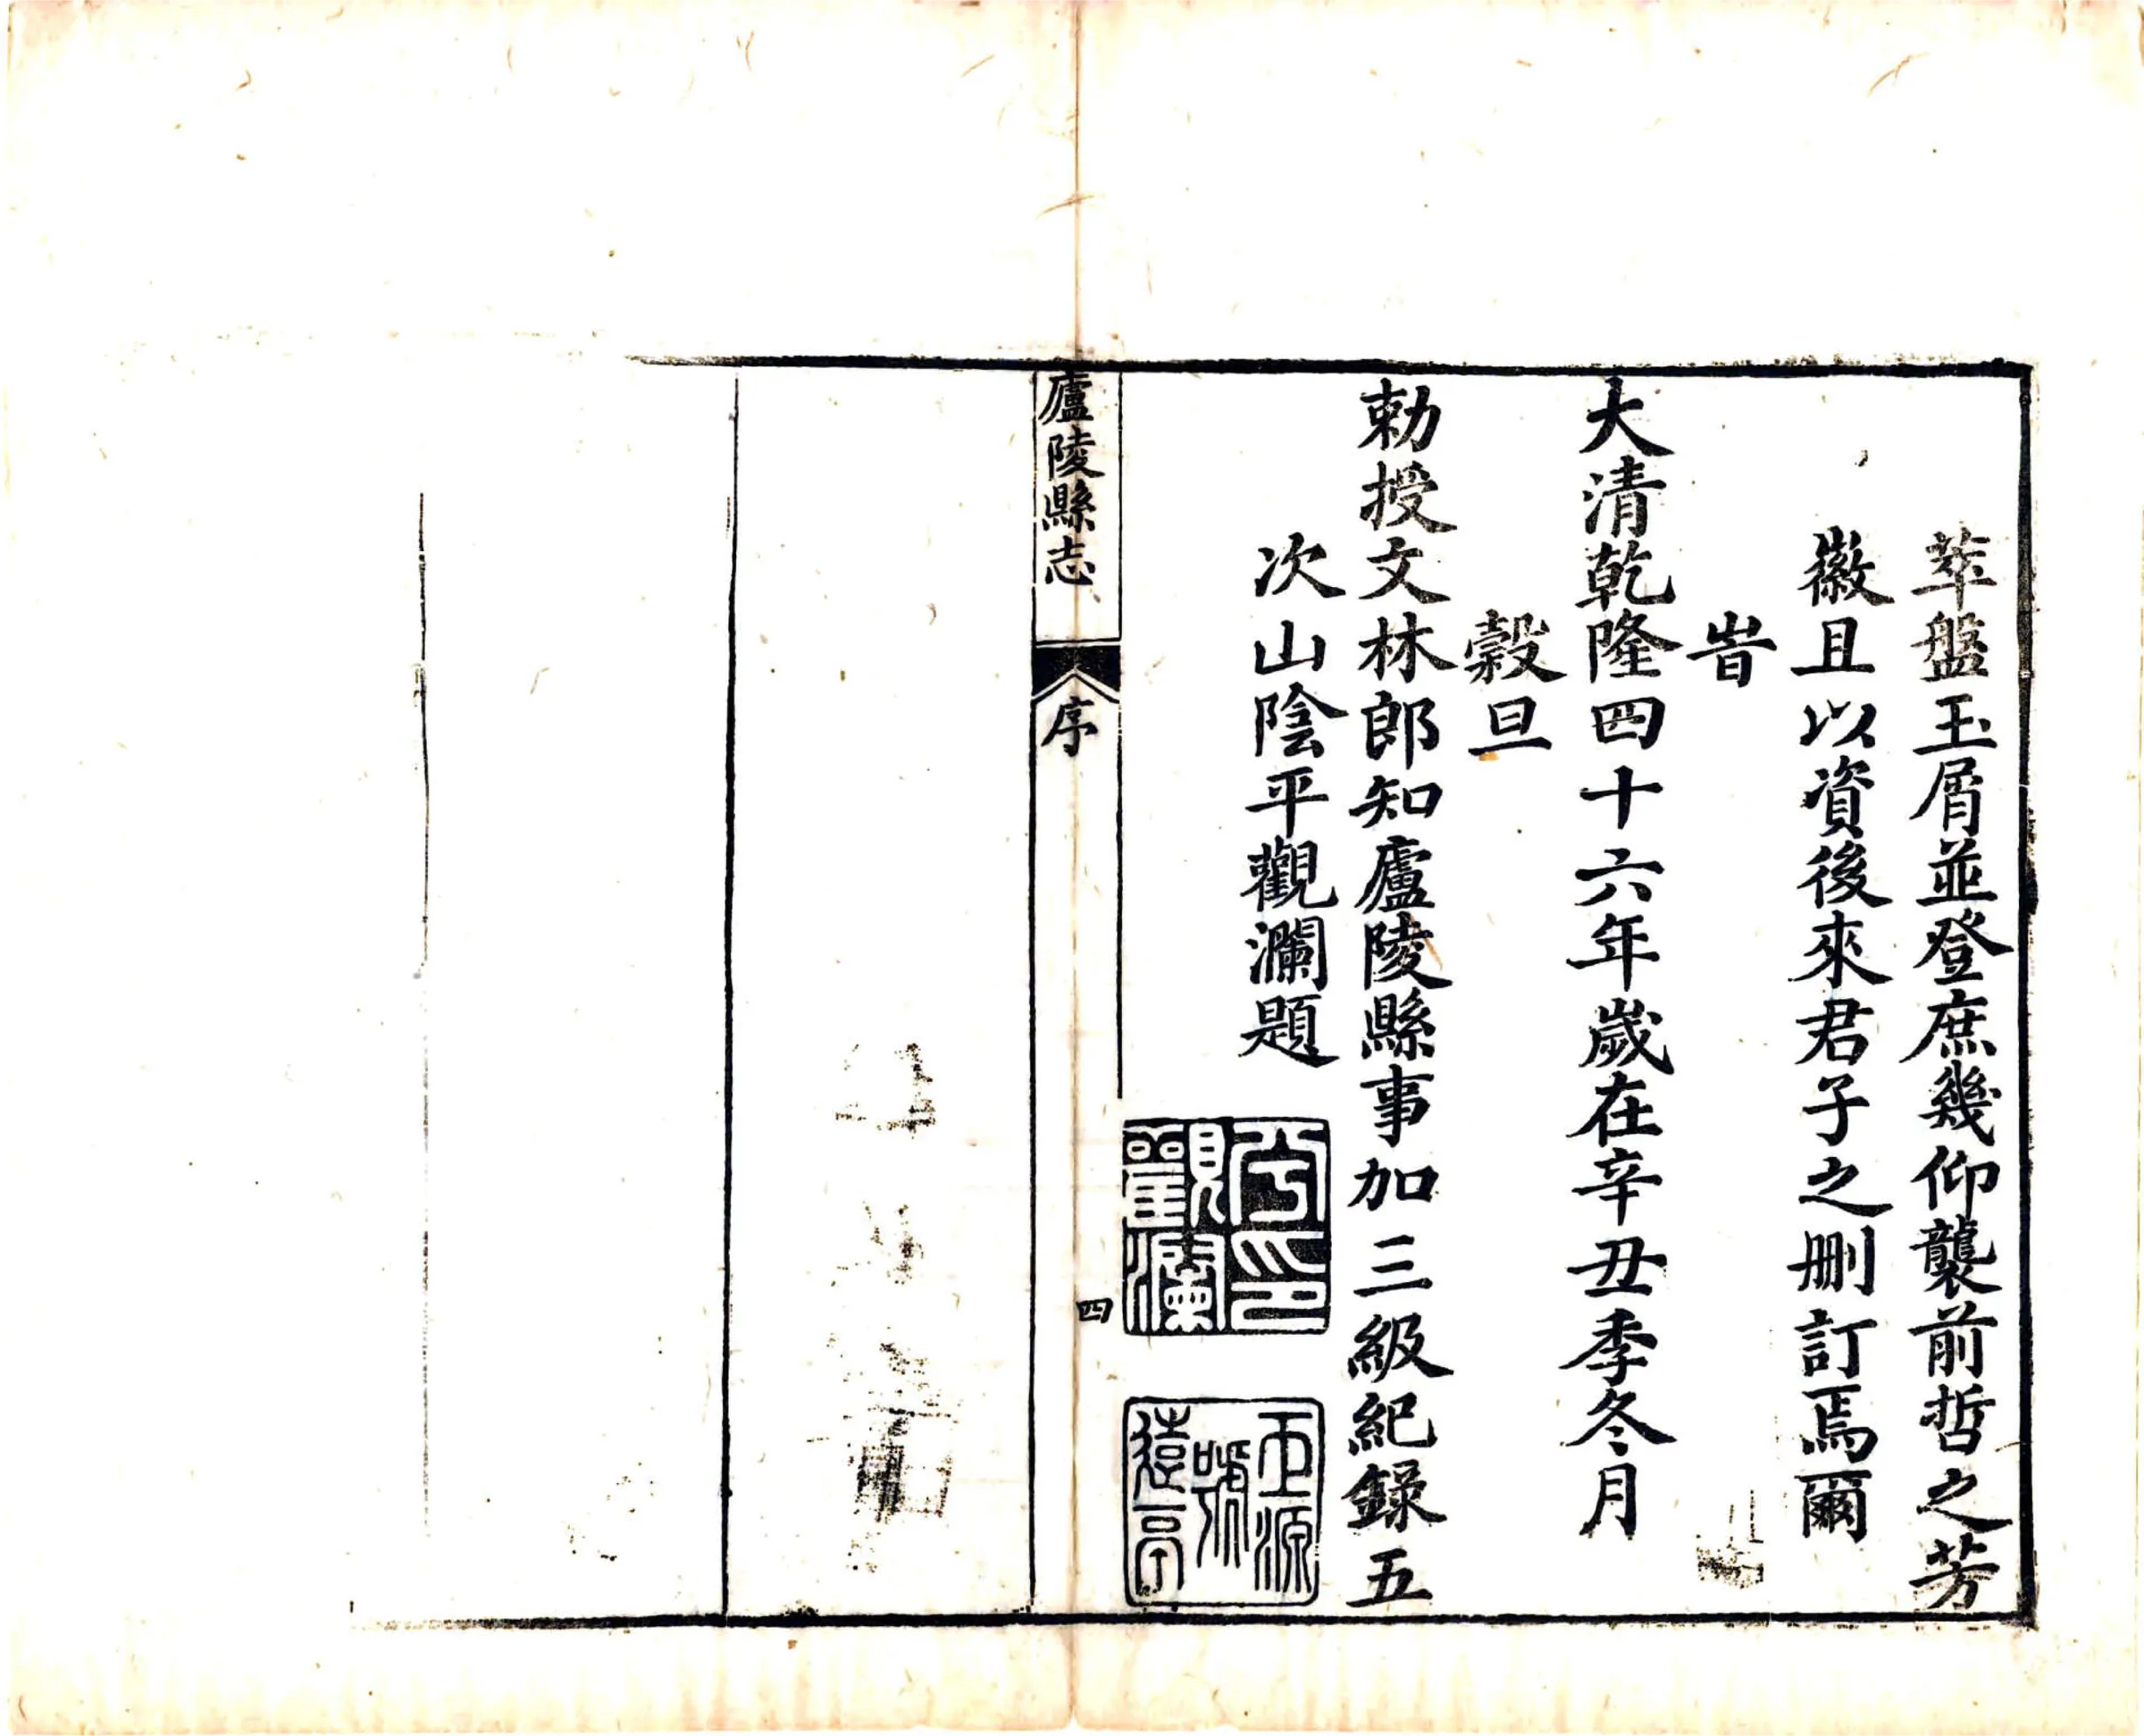 萃盤玉屑並登庶幾仰襲前哲之芳
徽且以資後來君子之刪訂焉爾
旹
大清乾隆四十六年歲在辛丑季冬月
穀旦
勅授文林郎知廬陵縣事加三級紀錄五
次山陰平觀瀾題
平印觀瀾
廬陵縣志
序
四